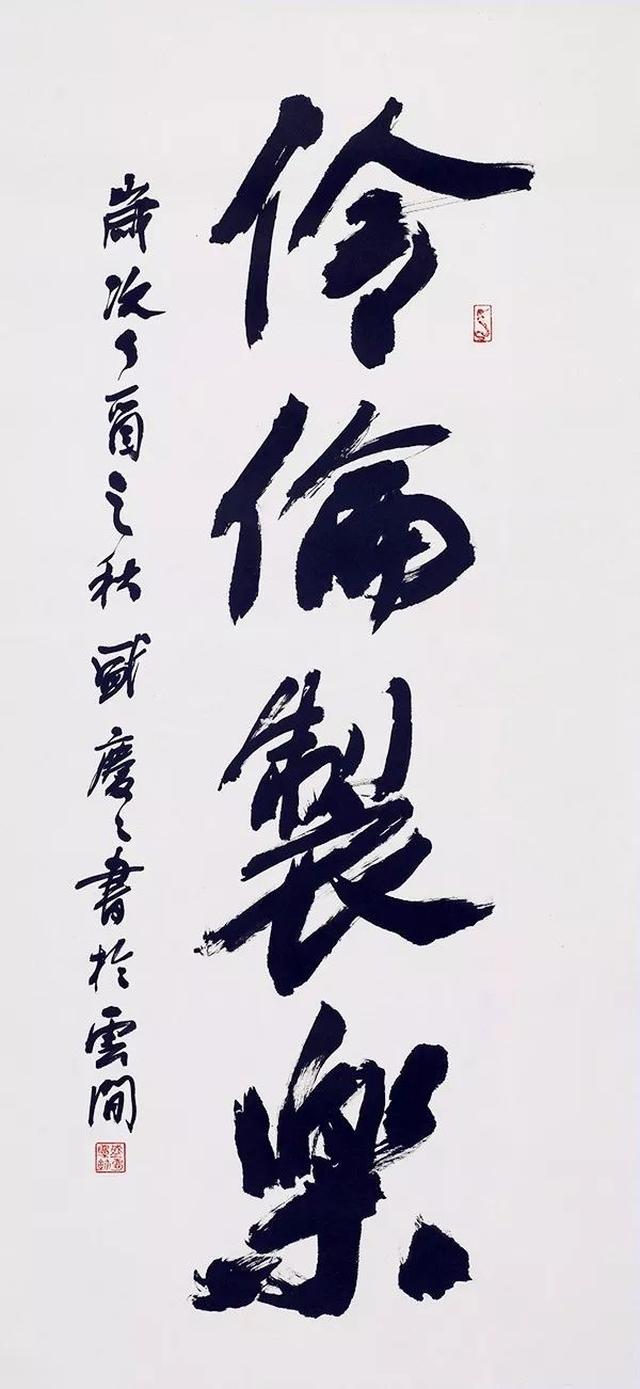 伶倫製樂
歲次丁酉之秋盛慶之書於雲間